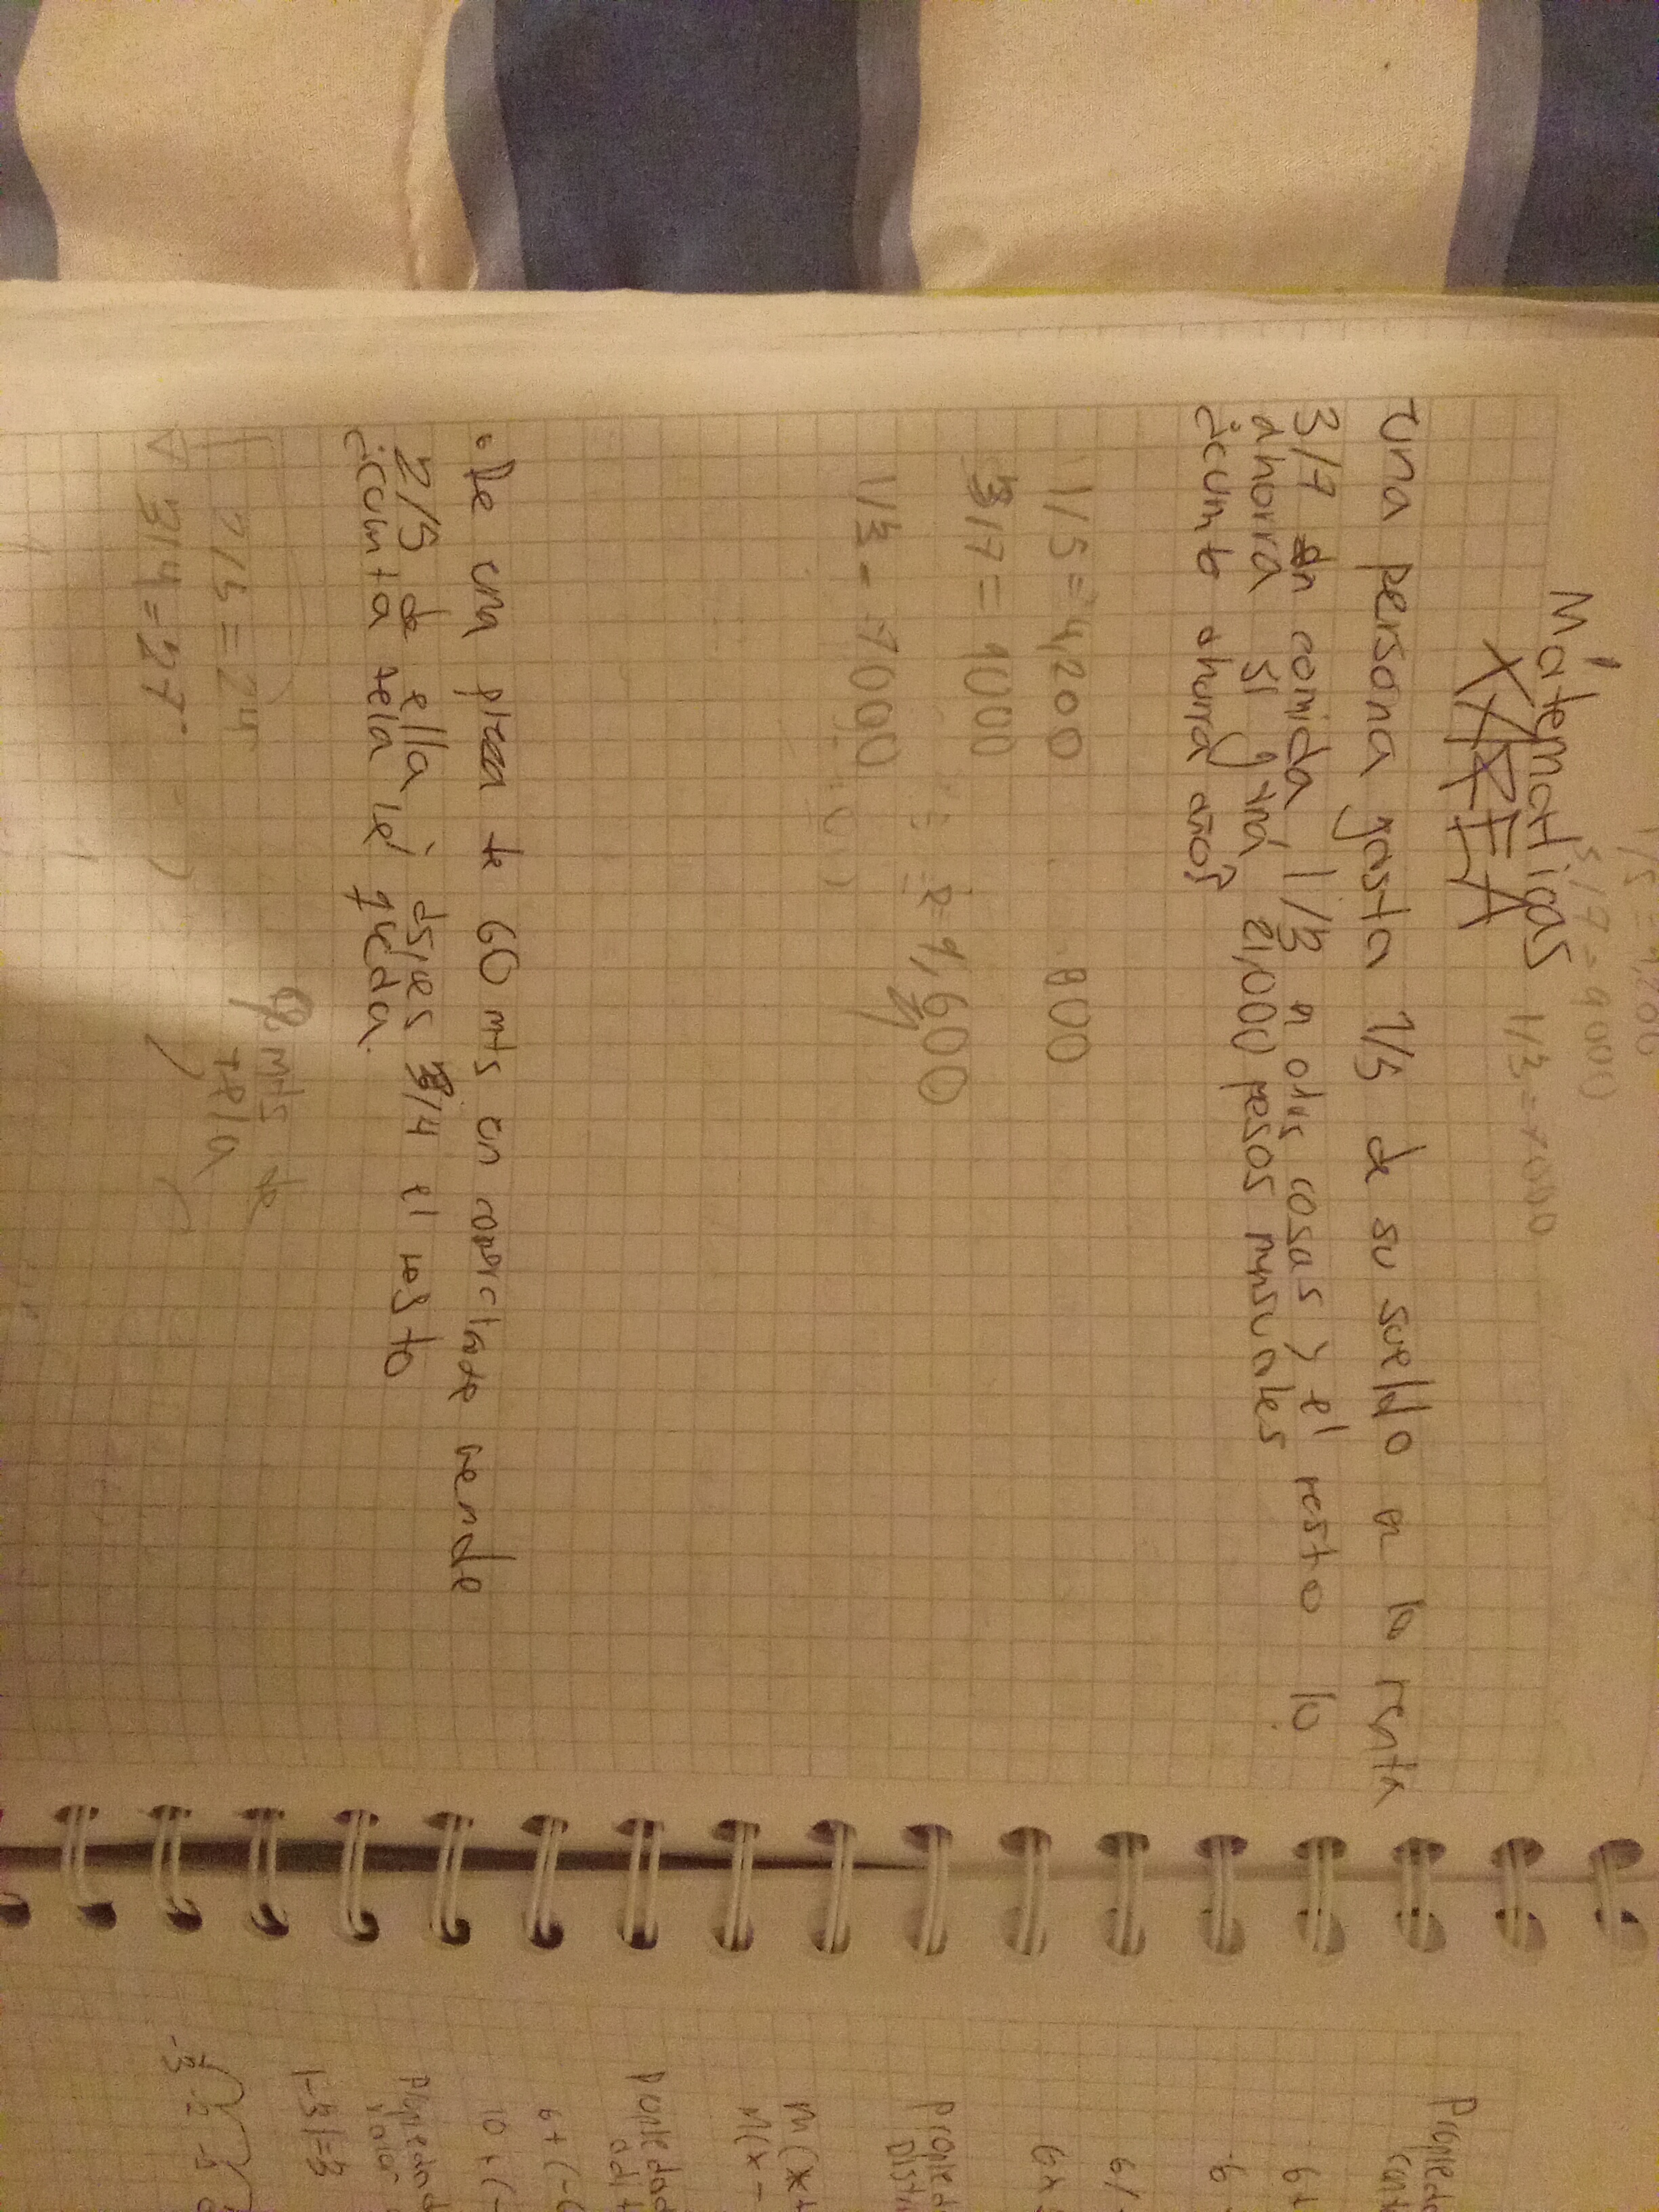 1/5 = 4,200
3/7 = 9000
1/3 = 7000
Matemáticas
TAREA
Una persona gasta 1/5 de su sueldo en la renta
3/7 en comida 1/3 n otras cosas y el resto lo
ahorra si gana 21,000 pesos mnsuales
¿cuanto ahorra año?
1/5 = 4,200 800
3/7 = 9000
R= 9,600
1/3 - 7000
• De una pieza de 60 mts un comerciante vende
2/5 de ella y dsiues 3/4 el resto
¿cuanta tela le queda.
2/5 = 24
9 mts de
tela
3/4 = 27
Propieda
6+
6x
Propied
Distr
m(x+
M(x-
Propiedad
6+(-6
10+(-
Propiedad
valor
|-3|=3